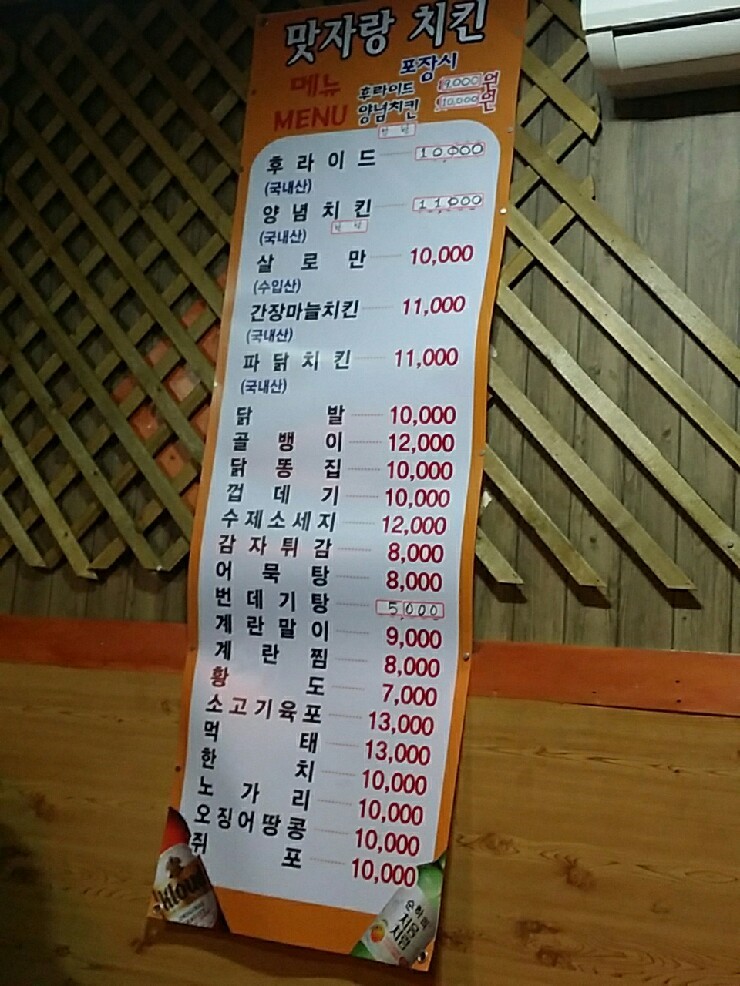 맛자랑 치킨
메뉴
MENU
포장시
후라이드 9,000원
양념치킨 10,000원
후라이드 10,000
(국내산)
양념치킨 11,000
(국내산)
살로만 10,000
(수입산)
간장마늘치킨 11,000
(국내산)
파닭치킨 11,000
(국내산)
닭발 10,000
골뱅이 12,000
닭똥집 10,000
껍데기 10,000
수제소세지 12,000
감자튀김 8,000
어묵탕 8,000
번데기탕 5000
계란말이 9,000
계란찜 8,000
황도 7,000
소고기육포 13,000
먹태 13,000
한치 10,000
노가리 10,000
오징어땅콩 10,000
쥐포 10,000
Kloud
순하리